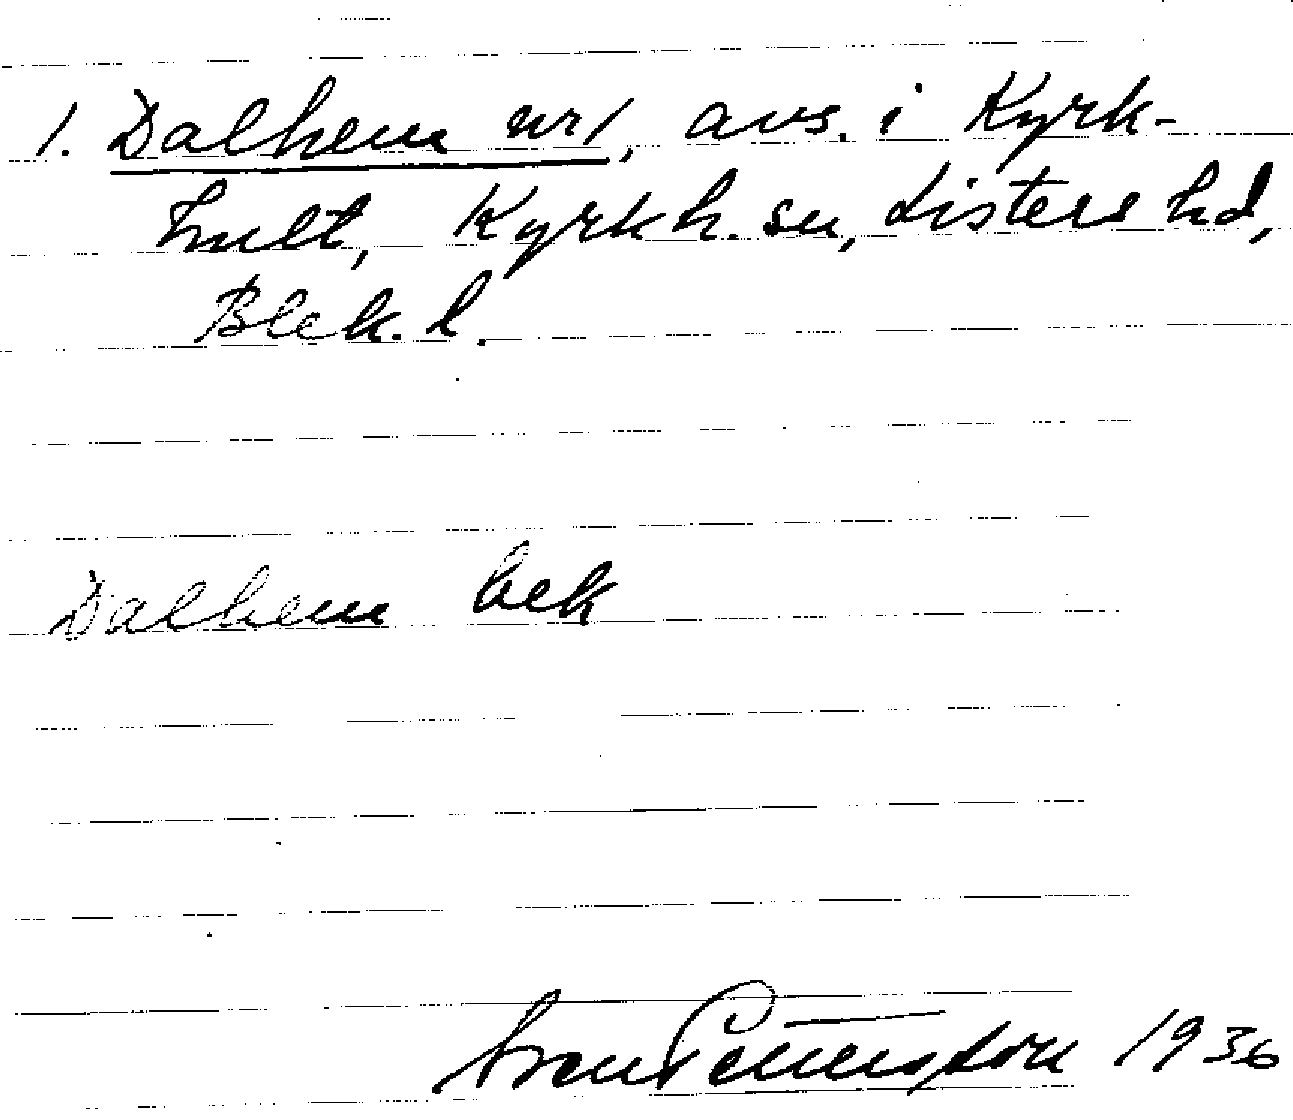 1. Dalhem nr 1, avs. i Kyrk-
hult, Kyrkh. sn, Listers hd,
Blek. l.
Dalhem bek
Sven Petterson 1936